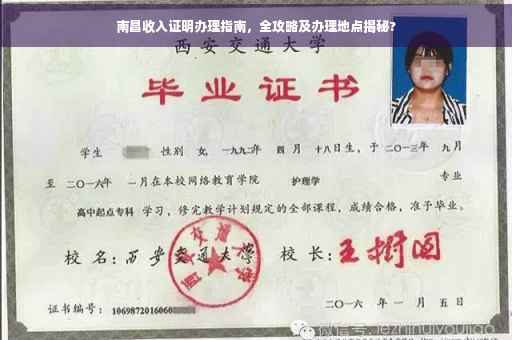 南昌收入证明办理指南，全攻略及办理地点揭秘？
西安交通大学
毕业证书
学生 性别 女，一九九二年 四月 十八日生，于二〇一三年 九月
至 二〇一六年 一月在本校网络教育学院 护理学 专业
高中起点专科 学习，修完教学计划规定的全部课程，成绩合格，准予毕业。
校名：西安交通大学 校长：王树国
西安交通大学
证书编号：1069872016060 二〇一六 年 一 月 五 日
微信号: jezhihuiyoujiao